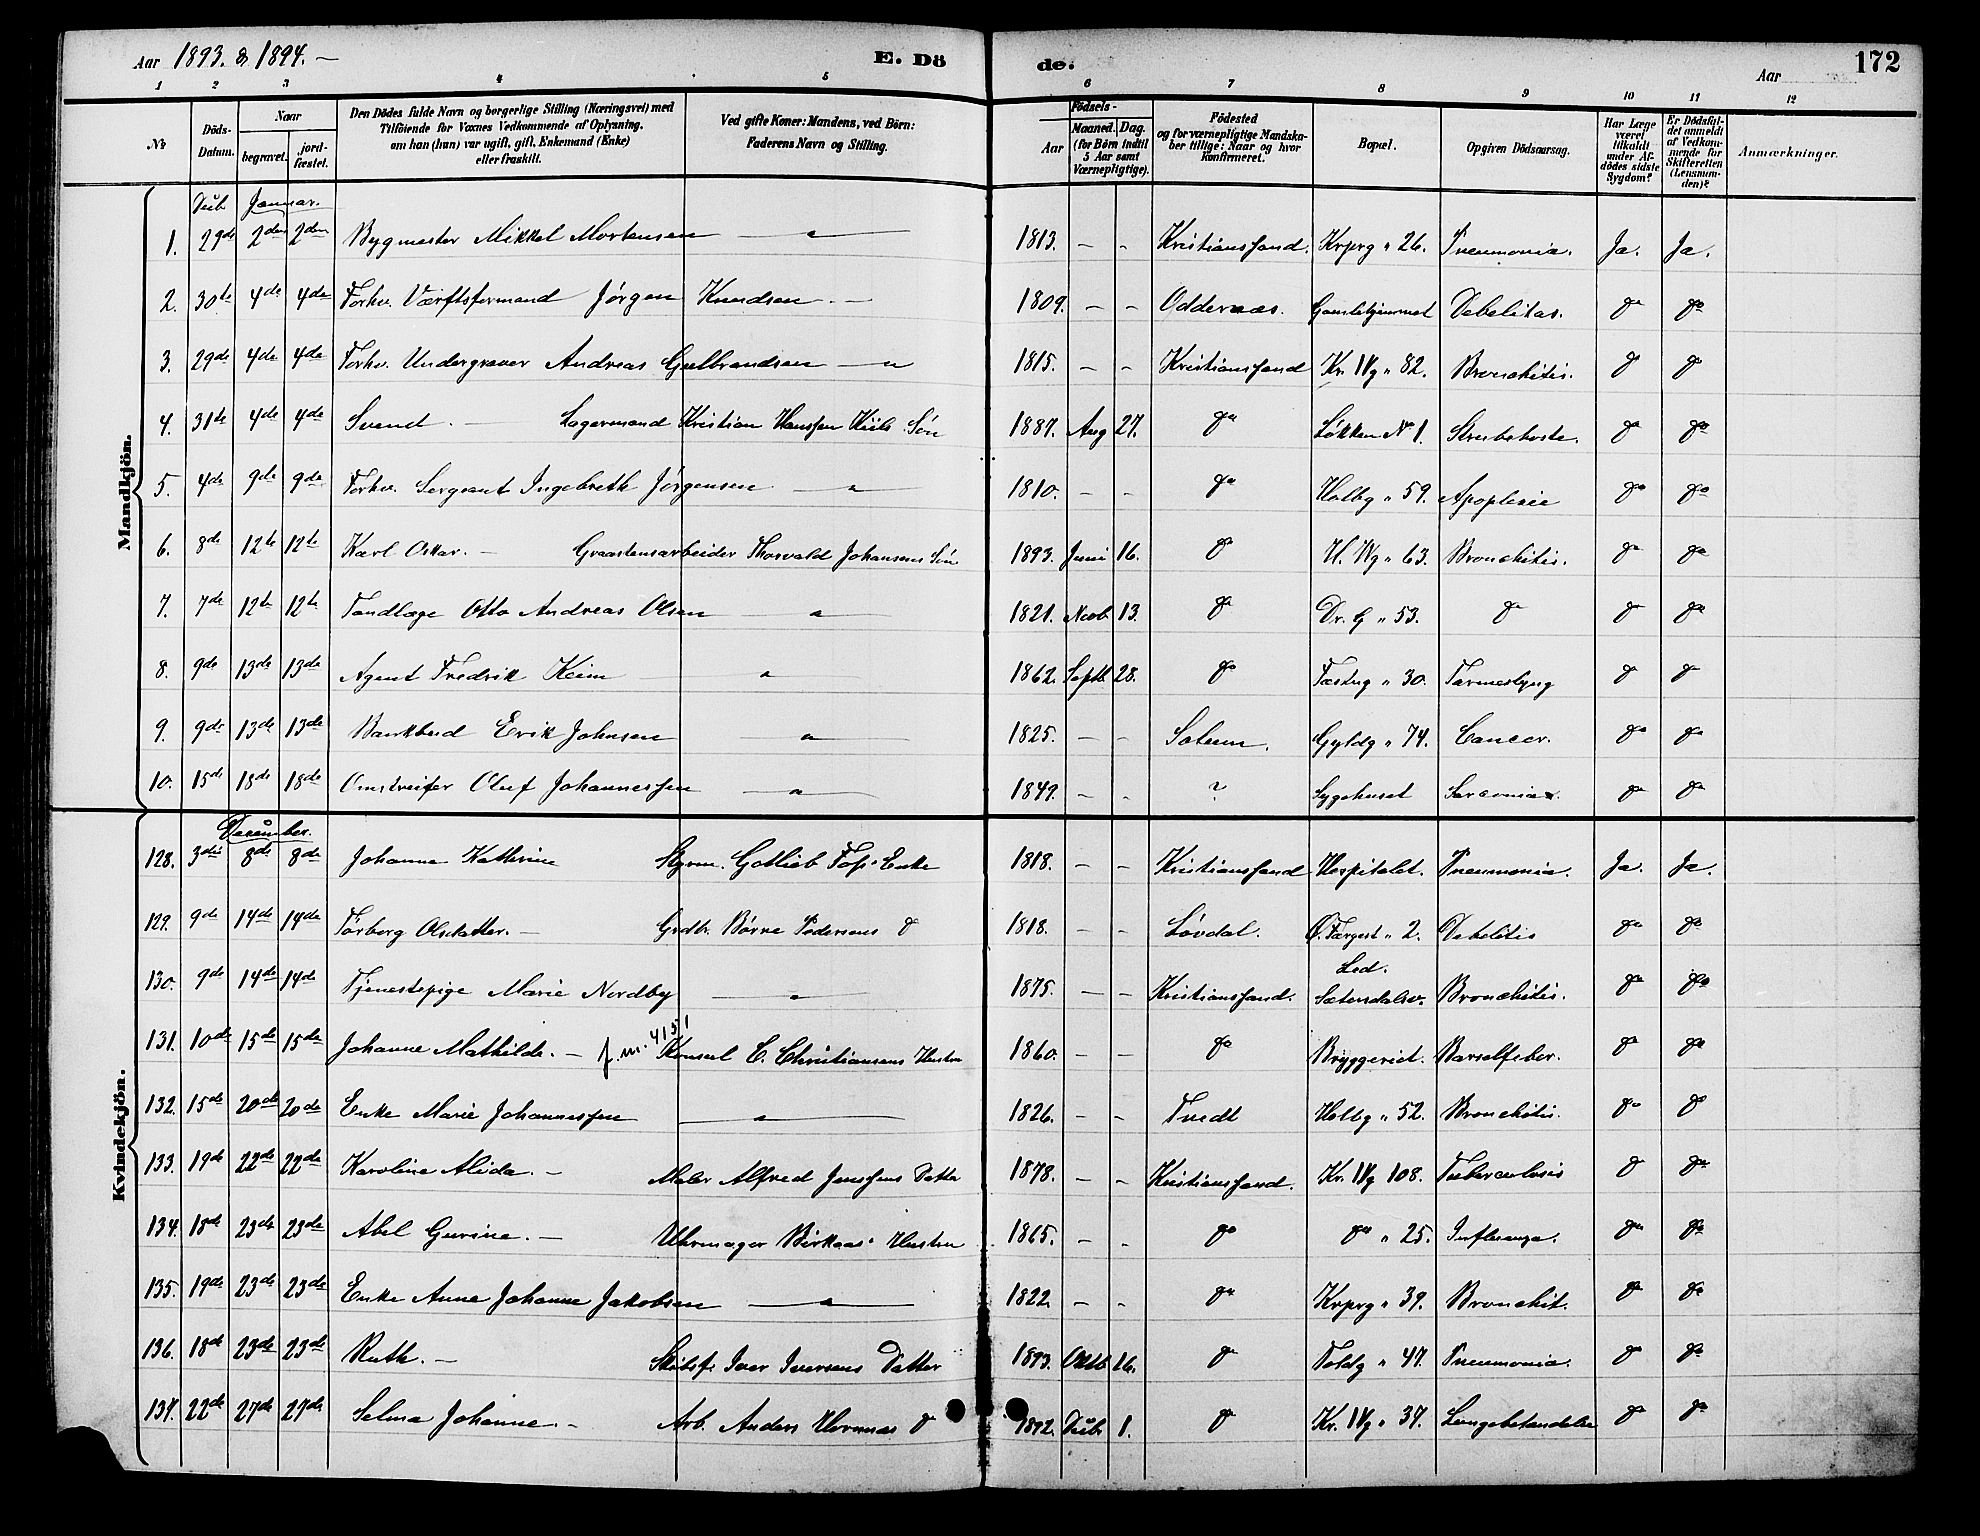 Aar 1893. & 1894. —
E. Dö de.
Aar
172
1 2 3 4 5 6 7 8 9 10 11 12
No
Döds-Datum.
Naar
begravet.
jord-fæstet.
Den Dödes fulde Navn og borgerlige Stilling (Næringsvei) med Tilföiende for Voxnes Vedkommende af Oplysning. om han (hun) var ugift, gift, Enkemand (Enke) eller fraskilt.
Ved gifte Koner: Mandens, ved Börn: Faderens Navn og Stilling.
Födsels-
Aar
Maaned. Dag.
(for Börn indtil 5 Aar samt Værnepligtige).
Födested og for værnepligtige Mandskaber tillige: Naar og hvor konfirmeret.
Bopæl.
Opgiven Dödsaarsag.
Har Læge været tilkaldt under Afdödes sidste Sygdom?
Er Dödsfaldet anmeldt af Vedkommende for Skifteretten (Lensmanden)?
Anmærkninger.
Mandkjön.
Januar.
1. 29de 2den 2den Bygmester Mikkel Mortensen — 1813. — - Kristianssand. Krprg " 26. Pneumonia. Ja. Ja.
2. 30te 4de 4de Forhv. Værftsformand Jørgen Knudsen. — 1809. — - Oddernæs. Gamlehjemmet Debelitas. do do
3. 29de 4de 4de Forhv. Undergraver Andreas Gulbrandsen — 1815. — - Kristianssand Kr. IVg " 82. Bronchitis. do do
4. 31te 4de 4de Svend. — Lagermand Kristian Hanssen Kiils Søn 1887. Aug 27. do Løkken No 1. Strubehoste. do do
5. 4de 9de 9de Forhv. Sergeant Ingebreth Jørgensen — 1810. — - do Holbg " 59. Apoplexie do do
6. 8de 12te 12te Karl Oskar. — Graastensarbeider Thorvald Johansens Søn 1893. Juni 16. do H. Wg " 63. Bronchitis. do do
7. 7de 12te 12te Tandlæge Otto Andreas Olsen — 1821. Novb. 13. do Dr. G " 53. do do do
8. 9de 13de 13de Agent Fredrik Keim — 1862. Septb. 28. do Fæstng " 30. do do
9. 9de 13de 13de Bankbud Erik Johnsen — 1825. — - Gyldg " 74. Cancer. do do
10. 15de 18de 18de Omstreifer Oluf Johannessen — 1849. — - ? Sygehuset Sarcomia. do do
Kvindekjön.
December.
128. 3die 8de 8de Johanna Kathrine Styrm. Gotlieb Foss' Enke 1818. — - Kristianssand Hospitalet. Pneumonia. Ja. Ja.
129. 9de 14de 14de Torborg Olsdatter. — Grdbr. Børre Pedersens do 1818. — - Løvdal. Ø. Færgest " 2. Debelitis do do
130. 9de 14de 14de Tjenestepige Marie Nordby — 1875. — - Kristianssand. Led. Sætersdalsv. Bronchitis. do do
131. 10de 15de 15de Johanne Mathilde. — f.m. 4151 Konsul C. Christiansens Hustru 1860. — - do Bryggeriet. Barselfeber. do do
132. 15de 20de 20de Enke Marie Johannessen — 1826. — - Tvedt Holbg " 52. Bronchitis. do do
133. 19de 22de 22de Karoline Alida. — Maler Alfred Jenssens Datter 1878. — - Kristianssand. Kr. IVg 108. Tuberculosis do do
134. 18de 23de 23de Abel Gurine. — Uhrmager Birkaas' Hustru 1865. — - do do " 25. Influenza. do do
135. 19de 23de 23de Enke Anne Johanne Jakobsen — 1822. — - do Krprg " 39. Bronchit. do do
136. 18de 23de 23de Ruth. — Skibsf. Iver Iversens Datter 1893. Oktb. 16. do Toldg " 47. Pneumonia. do do
137. 22de 27de 27de Selma Johanne. — Arb. Anders Hornnæs do 1892. Decbr. 1. do Kr. IVg " 37. Lungebetændelse do do